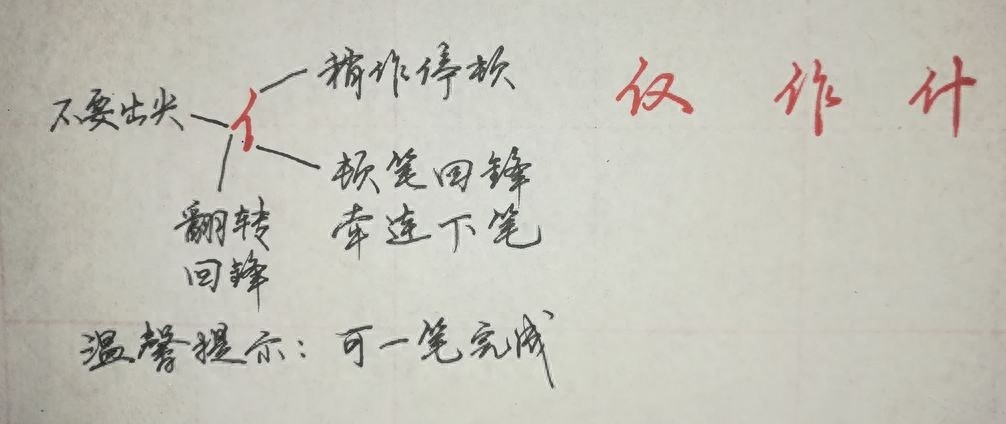 稍作停顿
不要出尖
亻
顿笔回锋
牵连下笔
翻转
回锋
仅 作 什
温馨提示：可一笔完成